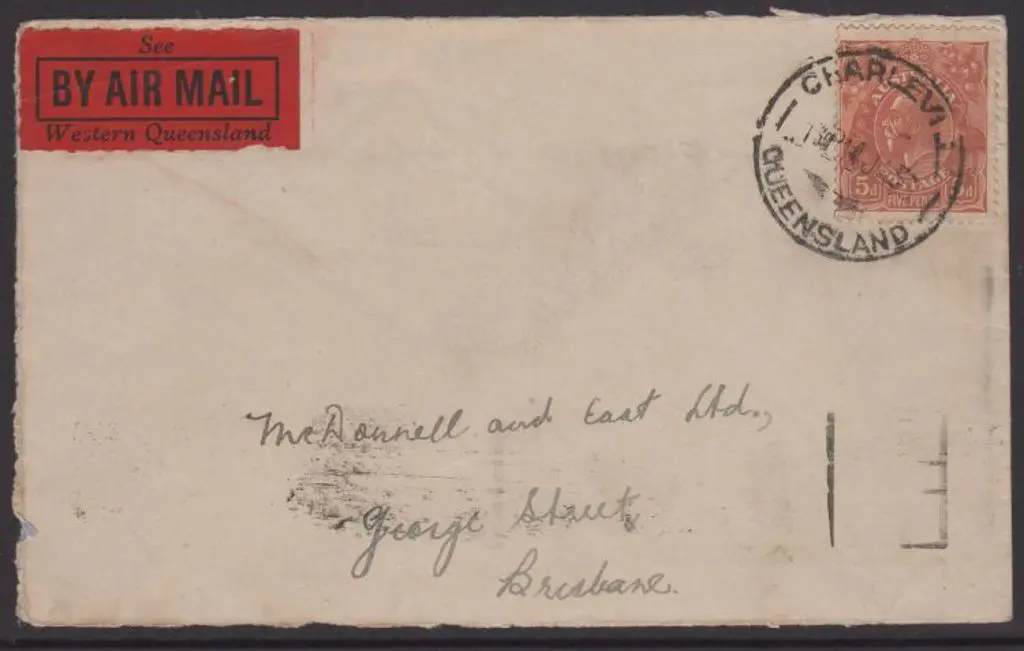 See
BY AIR MAIL
Western Queensland
CHARLEVI
QUEENSLAND
POSTAGE
5d
FIVE PEN
McDonnell and East Ltd.,
George Street,
Brisbane.